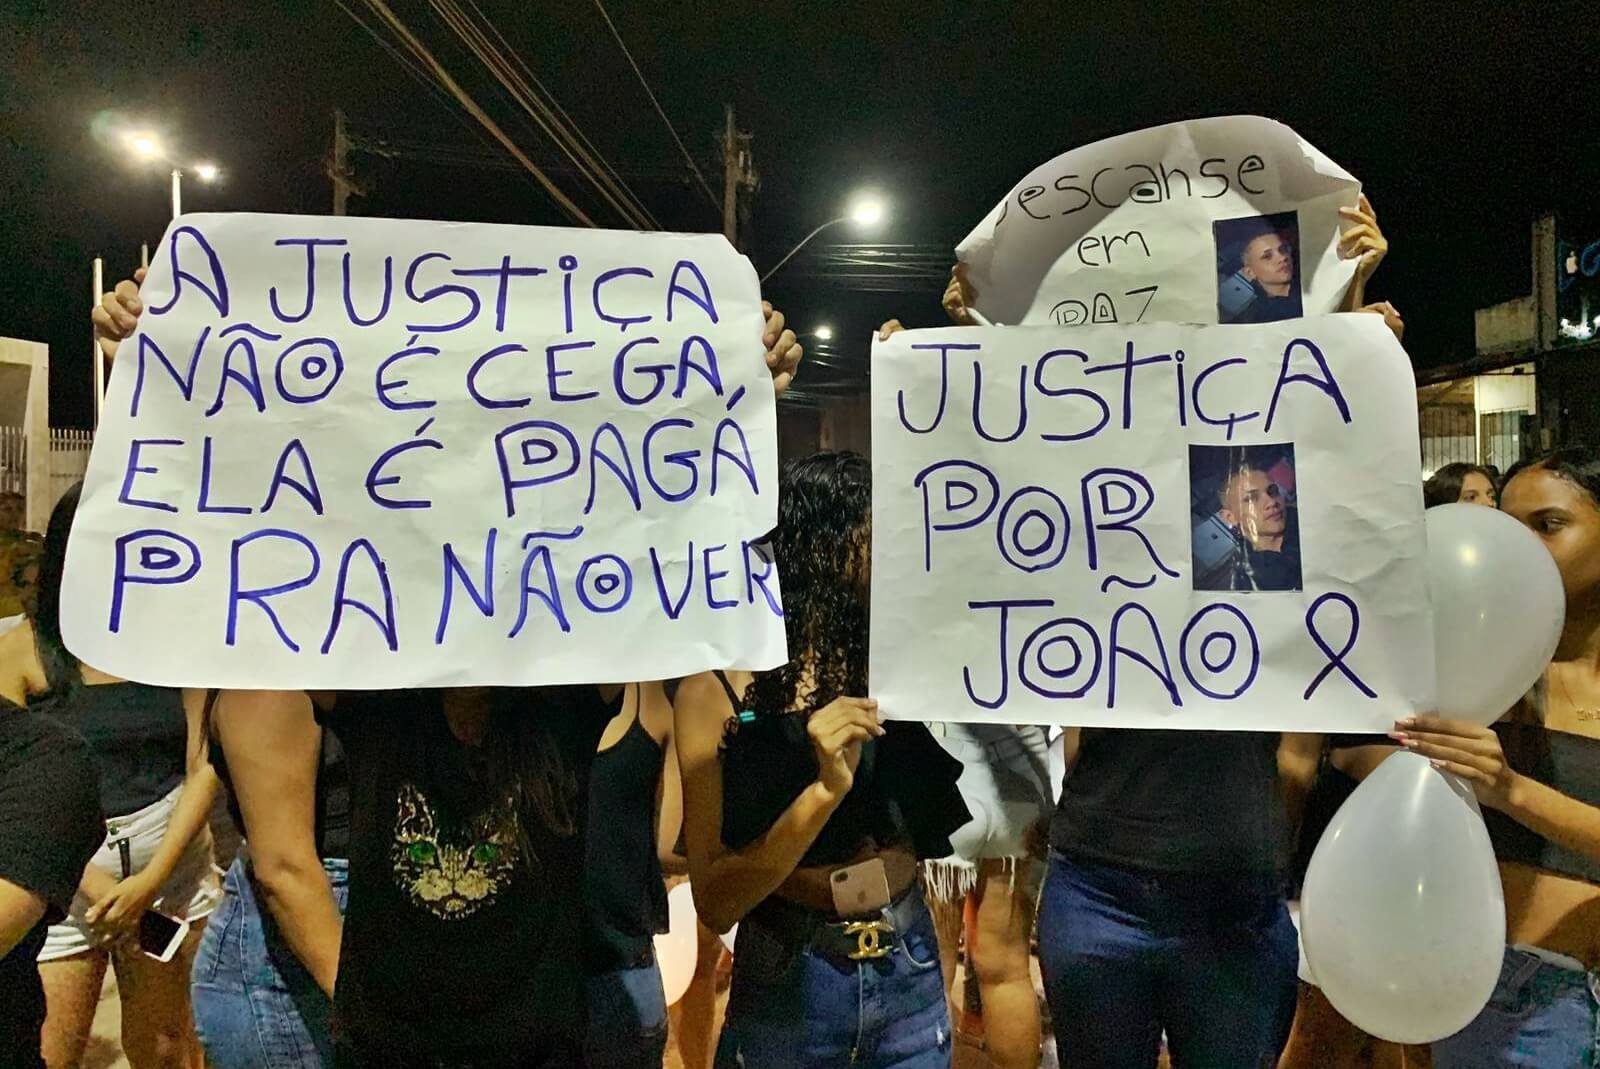 A JUSTIÇA
NÃO É CEGA,
ELA É PAGÁ
PRA NÃO VER
Descanse
em
PAZ
JUSTIÇA
POR
JOÃO